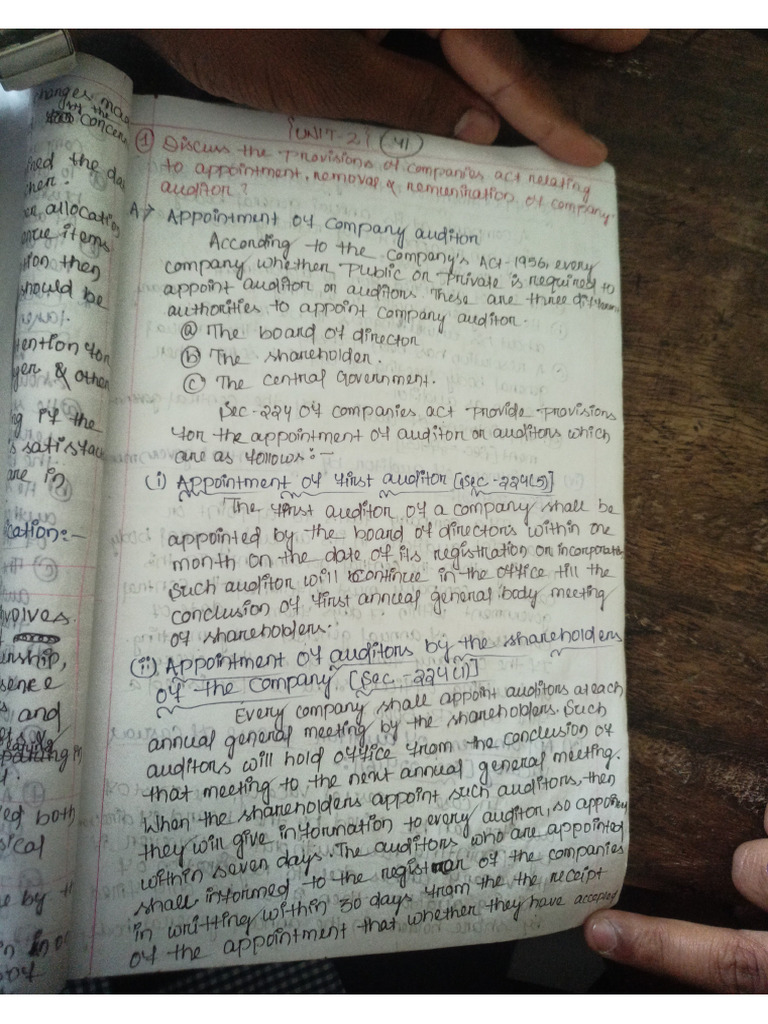 changes, ma
of the
concern
ined the da
her.
er, allocation
enue items
tion then
should be
tention for
yer & other
ng if the
s satisfac
are in
cation:-
nvolves
nership,
sence
s and
ed both
sical
e by t
UNIT-2 41
① Discuss the provisions of companies act relating
to appointment, removal & remuniration of company
auditor?
A→ Appointment of company auditor
According to the company's Act-1956, every
company whether public or private is required to
appoint auditor or auditors. These are three different
authorities to appoint company auditor.
ⓐ The board of director
ⓑ The shareholder.
ⓒ The central Government.
Sec-224 of companies act provide provisions
for the appointment of auditor or auditors which
are as follows:-
(i) Appointment of first auditor [Sec-224(5)]
The first auditor of a company shall be
appointed by the board of directors within one
month on the date of its registration or incorporation
such auditor will continue in the office till the
conclusion of first annual general body meeting
of shareholders.
(ii) Appointment of auditors by the shareholders
of the company [Sec-224(1)]
Every company shall appoint auditors at each
annual general meeting by the shareholders. Such
auditors will hold office from the conclusion of
that meeting to the next annual general meeting.
When the shareholders appoint such auditors, then
they will give information to every auditor, so appointed
within seven days. The auditors who are appointed
shall informed to the registrar of the companies
in writting within 30 days from the the receipt
of the appointment that whether they have accepted